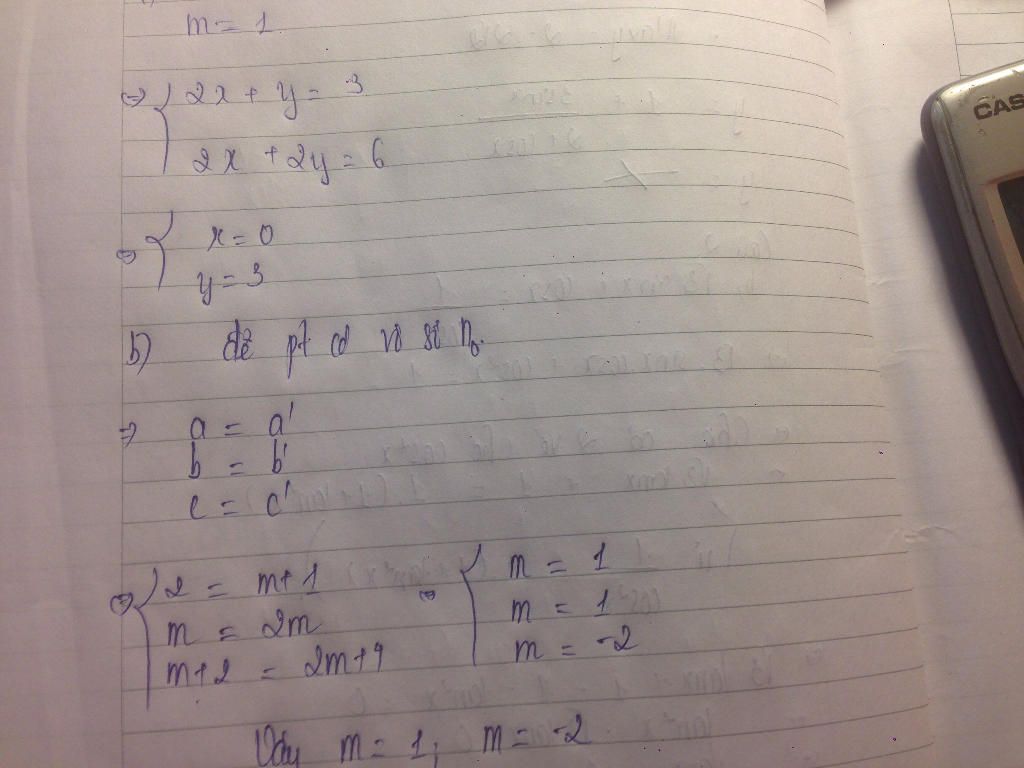 m = 1
⇒ { 2x + y = 3
2x + 2y = 6
⇔ { x = 0
y = 3
b) để pt có vô số n₀.
⇒ a = a'
b = b'
c = c'
⇔ { 2 = m+1 ⇔ { m = 1
m = 2m m = 1
m+2 = 2m+4 m = -2
Vậy m = 1; m = -2
CAS